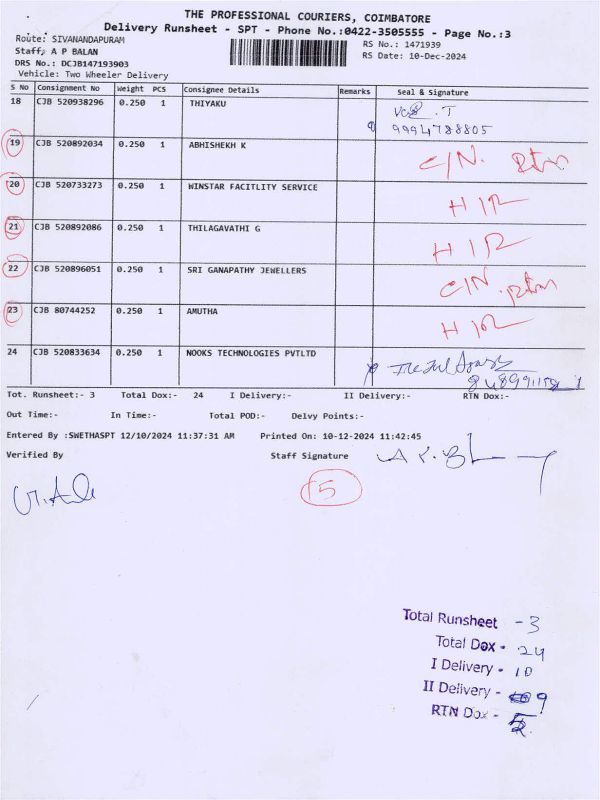 THE PROFESSIONAL COURIERS, COIMBATORE
Delivery Runsheet - SPT - Phone No.:0422-3505555 - Page No.:3
Route: SIVANANDAPURAM
RS No.: 1471939
Staff: A P BALAN
RS Date: 10-Dec-2024
DRS No.: DCJB147193903
Vehicle: Two Wheeler Delivery
S No Consignment No Weight PCS Consignee Details Remarks Seal & Signature
18 CJB 520938296 0.250 1 THIYAKU
9994788805
19 CJB 520892034 0.250 1 ABHISHEKH K C/N. Rtn
20 CJB 520733273 0.250 1 WINSTAR FACITLITY SERVICE
21 CJB 520892086 0.250 1 THILAGAVATHI G
22 CJB 520896051 0.250 1 SRI GANAPATHY JEWELLERS C/N. Rtn
23 CJB 80744252 0.250 1 AMUTHA
24 CJB 520833634 0.250 1 NOOKS TECHNOLOGIES PVTLTD
Tot. Runsheet:- 3 Total Dox:- 24 I Delivery:- II Delivery:- RTN Dox:-
Out Time:- In Time:- Total POD:- Delvy Points:-
Entered By :SWETHASPT 12/10/2024 11:37:31 AM Printed On: 10-12-2024 11:42:45
Verified By Staff Signature
5
Total Runsheet - 3
Total Dox - 24
I Delivery - 10
II Delivery - 9
RTN Dox - 5